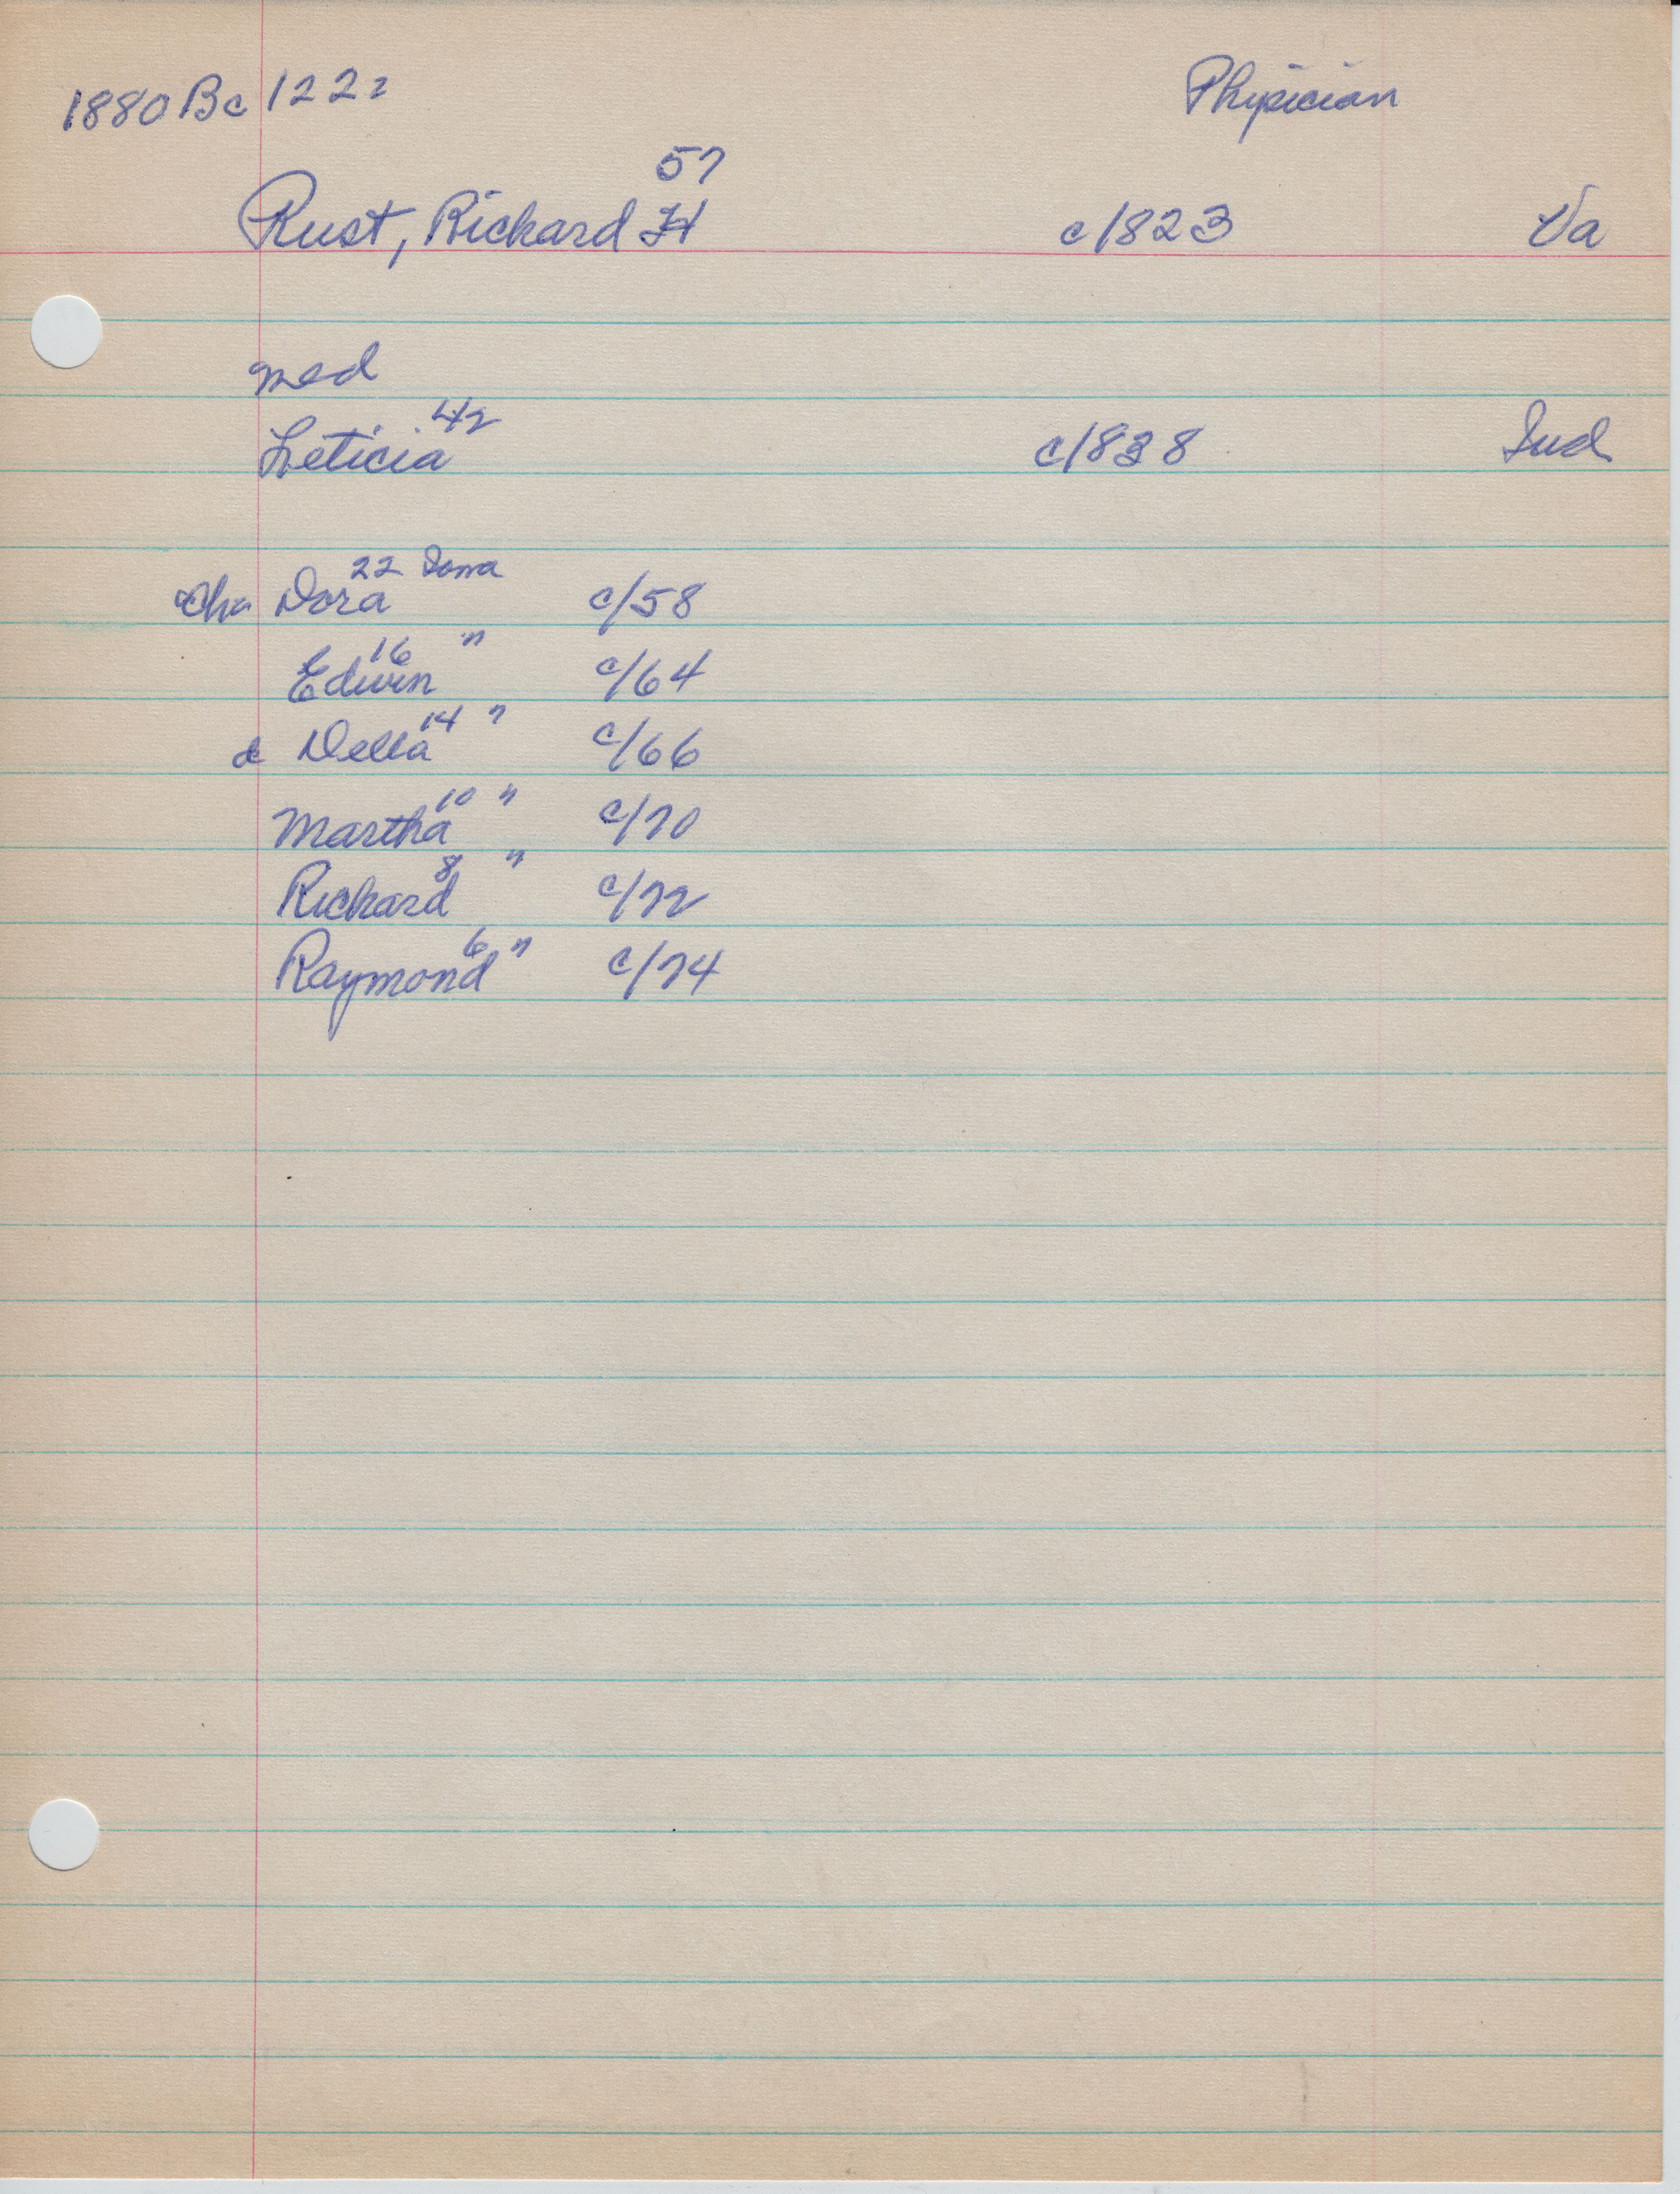 1880 Bc 1222 Physician
57
Rust, Richard H c/1823 Va
med
42
Leticia c/1838 Ind
22 Iowa
Ch Dora c/58
16 "
Edwin c/64
14 "
d Della c/66
10 "
Martha c/70
8 "
Richard c/72
6 "
Raymond c/74